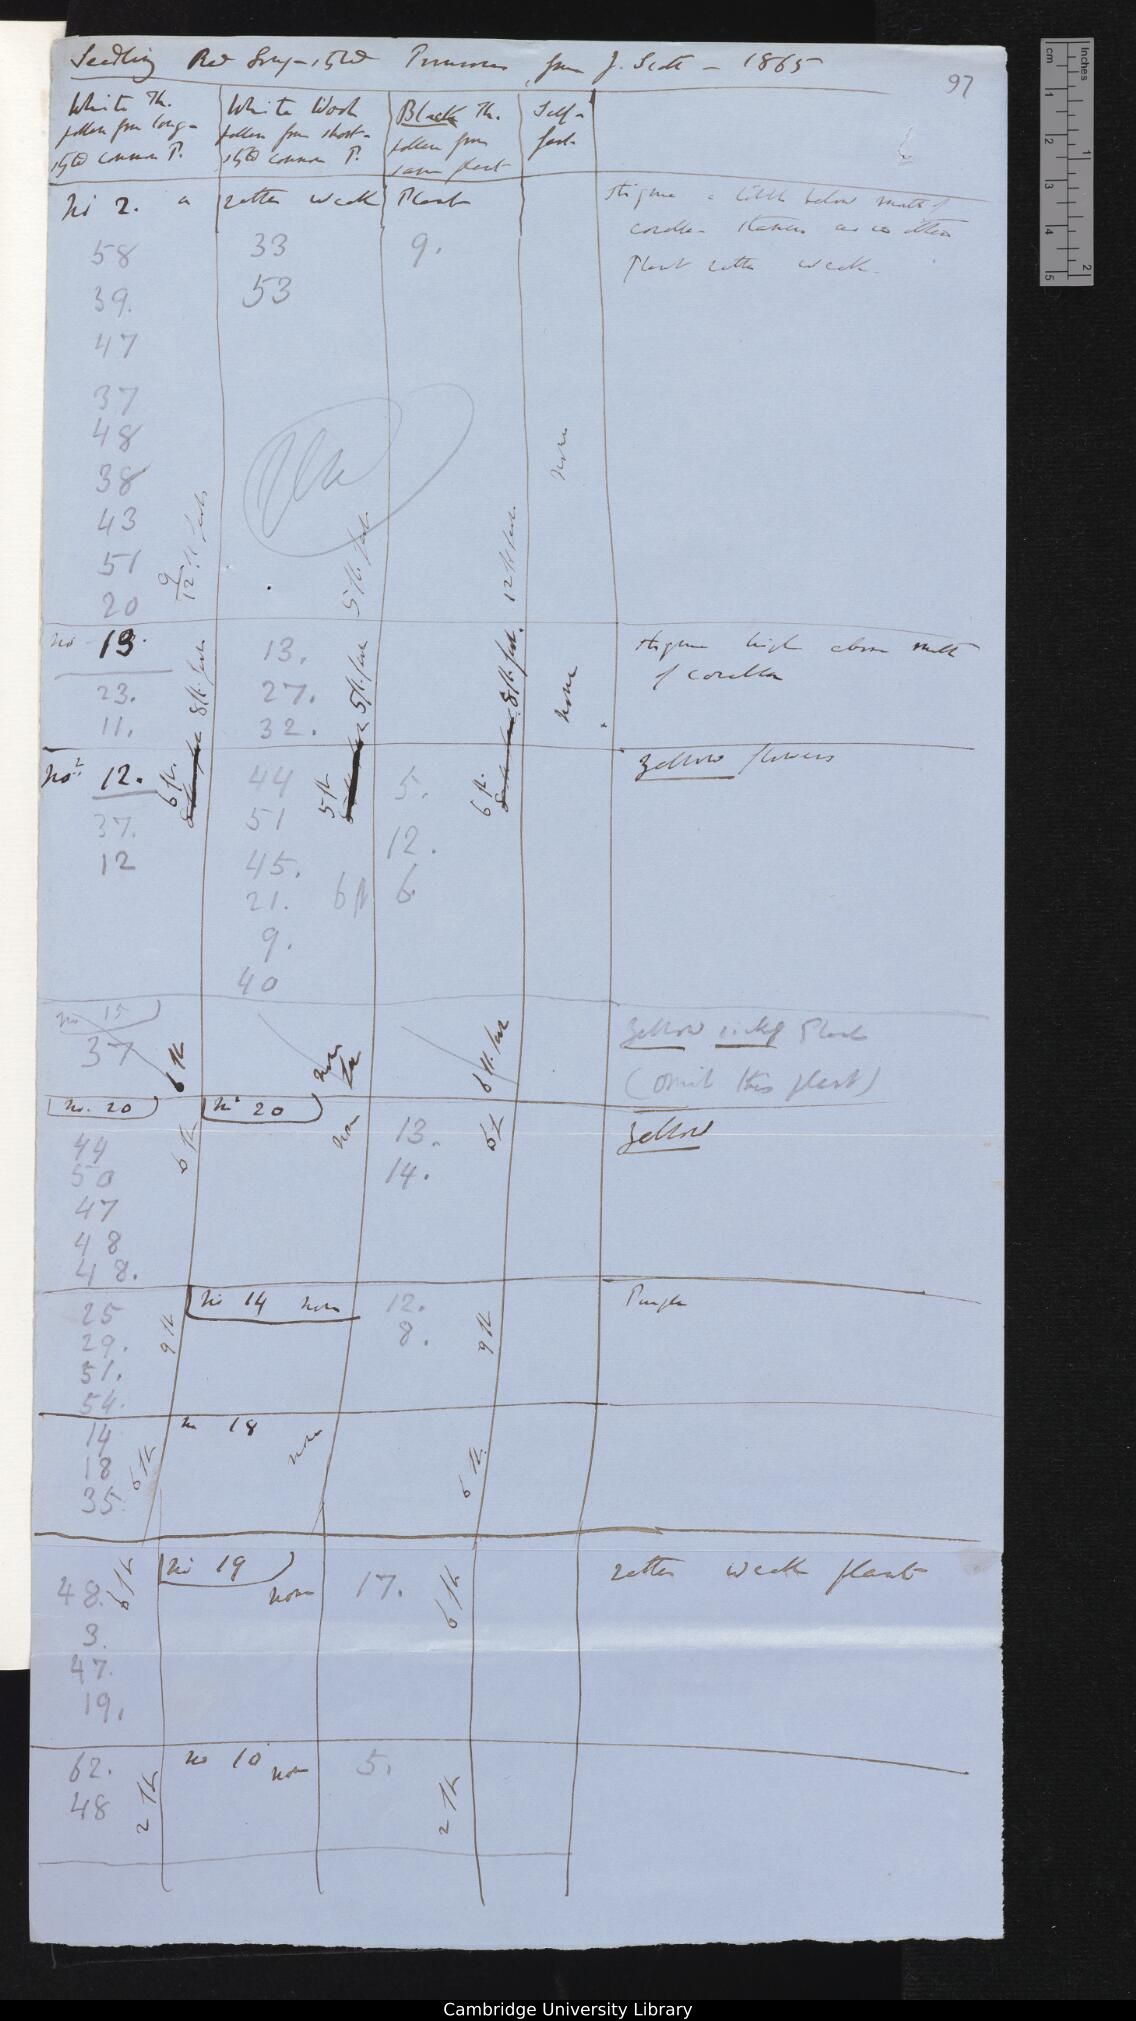 Seedling Red Long-styled Primroses from J. Scott – 1865
97
White Th.
pollen from long-
styled common P.
White Wool
pollen from short-
styled common P.
Black Th.
pollen from
same plant
Self-
fert.
No 2. a rather weak Plant
Stigma a little below mouth of
corolla stamens as in other
Plant rather weak.
58 33 9.
39. 53
47
37
48
38
43
51
20
9/12 fl. fert.
5 fl. fert.
12 fl. fert.
none
No 13.
23.
11.
8 fl. fert.
13.
27.
32.
5 fl. fert.
8 fl. fert.
none
Stigma high above mouth
of corolla
No. 12.
37.
12
6 fl.
44
51
45.
21.
9.
40
5 fl.
6 fl
5.
12.
6.
6 fl.
Yellow flowers
No 15
37
6 fl.
none
6 fl. fert
Yellow sickly Plant
(omit this plant)
No. 20
No 20
44
50
47
48
48.
6 fl.
none
13.
14.
6 fl
Yellow
25
29.
51.
54.
9 fl.
No 14 none
12.
8.
9 fl.
Purple
14
18
35.
6 fl.
no 18
none
6 fl.
48.
3.
47.
19.
6 fl.
No 19
none
17.
6 fl.
rather weak plant
62.
48
2 fl.
no 10 none
5.
2 fl.
cm 1 2 3 4 5
Inches 1 2
Cambridge University Library